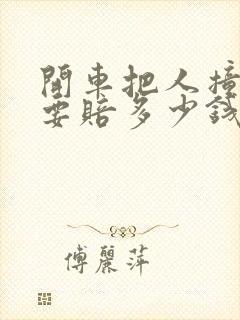 開車把人撞
要賠多少錢
傅麗萍